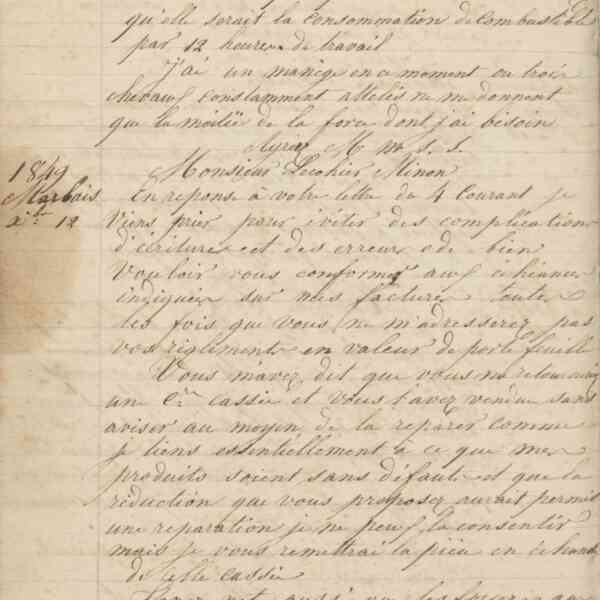 qu'elle serait la consommation de combustible
par 12 heures de travail
J'ai un manège en ce moment ou trois
chevaux constamment attelés ne me donnent
que la moitié de la force dont j'ai besoin
Agréez M mes S. S.
1849
Marbais
Xbre 12
Monsieur Lecohier Minon
En reponse à votre lettre du 4 Courant je
viens prier pour éviter des complications
d'écritures et des erreurs de bien
vouloir vous conformer aux échéances
indiquées sur mes factures toutes
les fois que vous ne m'adresserez pas
vos règlements en valeur de porte feuille
Vous mavez dit que vous me retourniez
une Cre cassée et vous l'avez vendue sans
aviser au moyen de la reparer comme
je tiens essentiellement à ce que mes
produits soient sans défauts et que la
réduction que vous proposez aurait permis
une reparation je ne peux la consentir
mais je vous remettrai la pièce en échange
de celle cassée